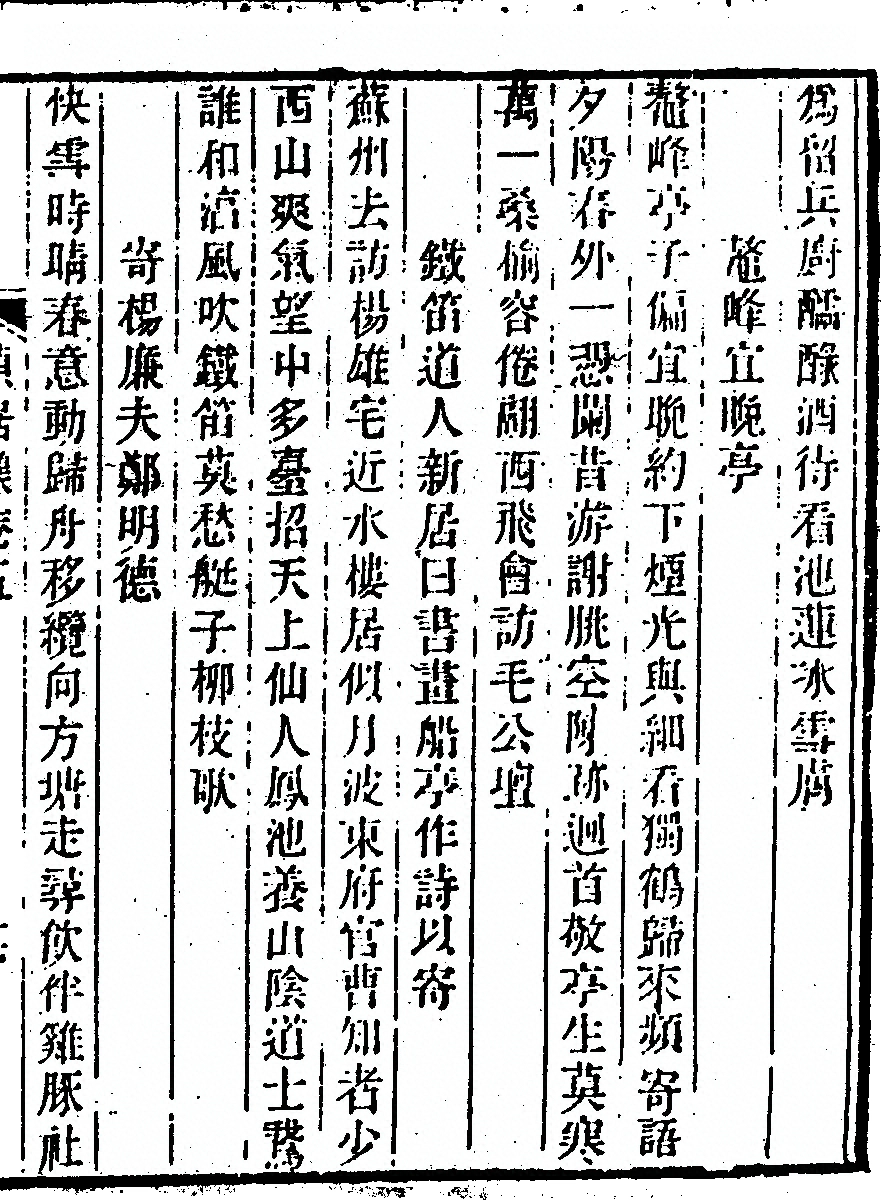 爲留兵廚醽醁酒待看池蓮冰雪膚
鼇峰宜晚亭
鼇峰亭子偏宜晚約下煙光與細看獨鶴歸來頻寄語
夕陽春外一憑闌昔游謝朓空陳跡迴首敬亭生莫寒
萬一桑榆容倦翮西飛會訪毛公壇
鐵笛道人新居曰書畫船亭作詩以寄
蘇州去訪楊雄宅近水樓居似月波東府官曹知者少
西山爽氣望中多臺招天上仙人鳳池養山陰道士鵞
誰和滄風吹鐵笛莫愁艇子柳枝歌
寄楊廉夫鄭明德
快雪時晴春意動歸舟移纜向方塘走尋飲伴雞豚社